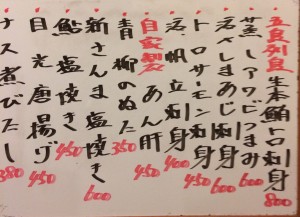 五島列島 生本鮪トロ刺身 800
蒸しアワビつまみ 600
活〆しまあじ刺身 600
トロサーモン刺身 450
活帆立刺身 400
自家製 あん肝 450
青柳のぬた 350
新さんま塩焼き 600
鮎塩焼き 450
目光唐揚げ 450
ナス煮びたし 380